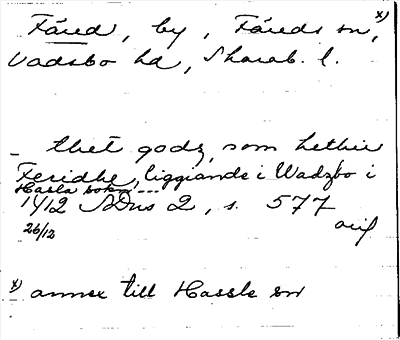 Färed, by, Färeds sn, x)
Vadsbo hd, Skarab. l.
– thet godz, som hethir
Feridhe, liggiande i Wadzbo i
Hasla sokn ---
1412 SDns 2, s. 577
26/12 orig
x) annex till Hassle sn